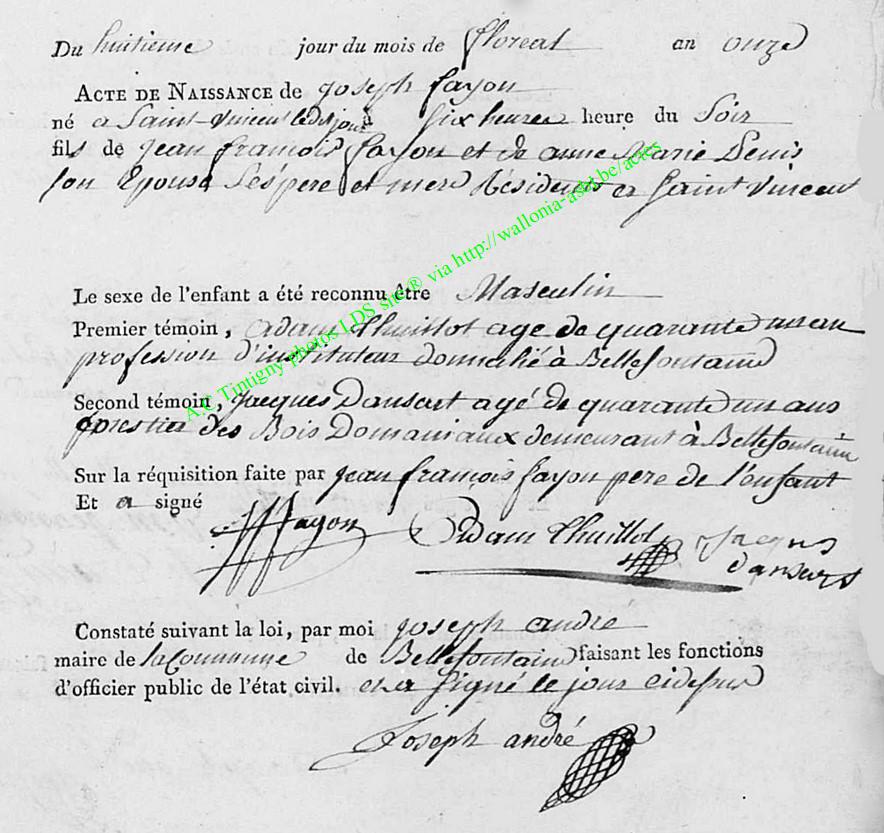 Du huitieme jour du mois de floreal an onze
ACTE DE NAISSANCE de joseph fayon
né a Saint-Vincent ledit jour à six heures heure du Soir
fils de jean françois fayon et de anne Marie Denis
son Epouse Ses pere et mere Résidents a Saint Vincent
Le sexe de l'enfant a été reconnu être Masculin
Premier témoin, adam thuillot agé de quarante un an
profession d'instituteur domicilié à Bellefontaine
Second témoin, jacques Dansart agé de quarante un ans
forestier des Bois Domaniaux demeurant à Bellefontaine
Sur la réquisition faite par jean françois fayon pere de l'enfant
Et a signé
fayon Adam thuillot jacques
dansart
Constaté suivant la loi, par moi joseph andré
maire de la Commune de Bellefontaine faisant les fonctions
d'officier public de l'état civil. et a signé le jour cidessus
Joseph andré
A.C Tintigny photos LDS sncl® via http://wallonia-asbl.be/actes